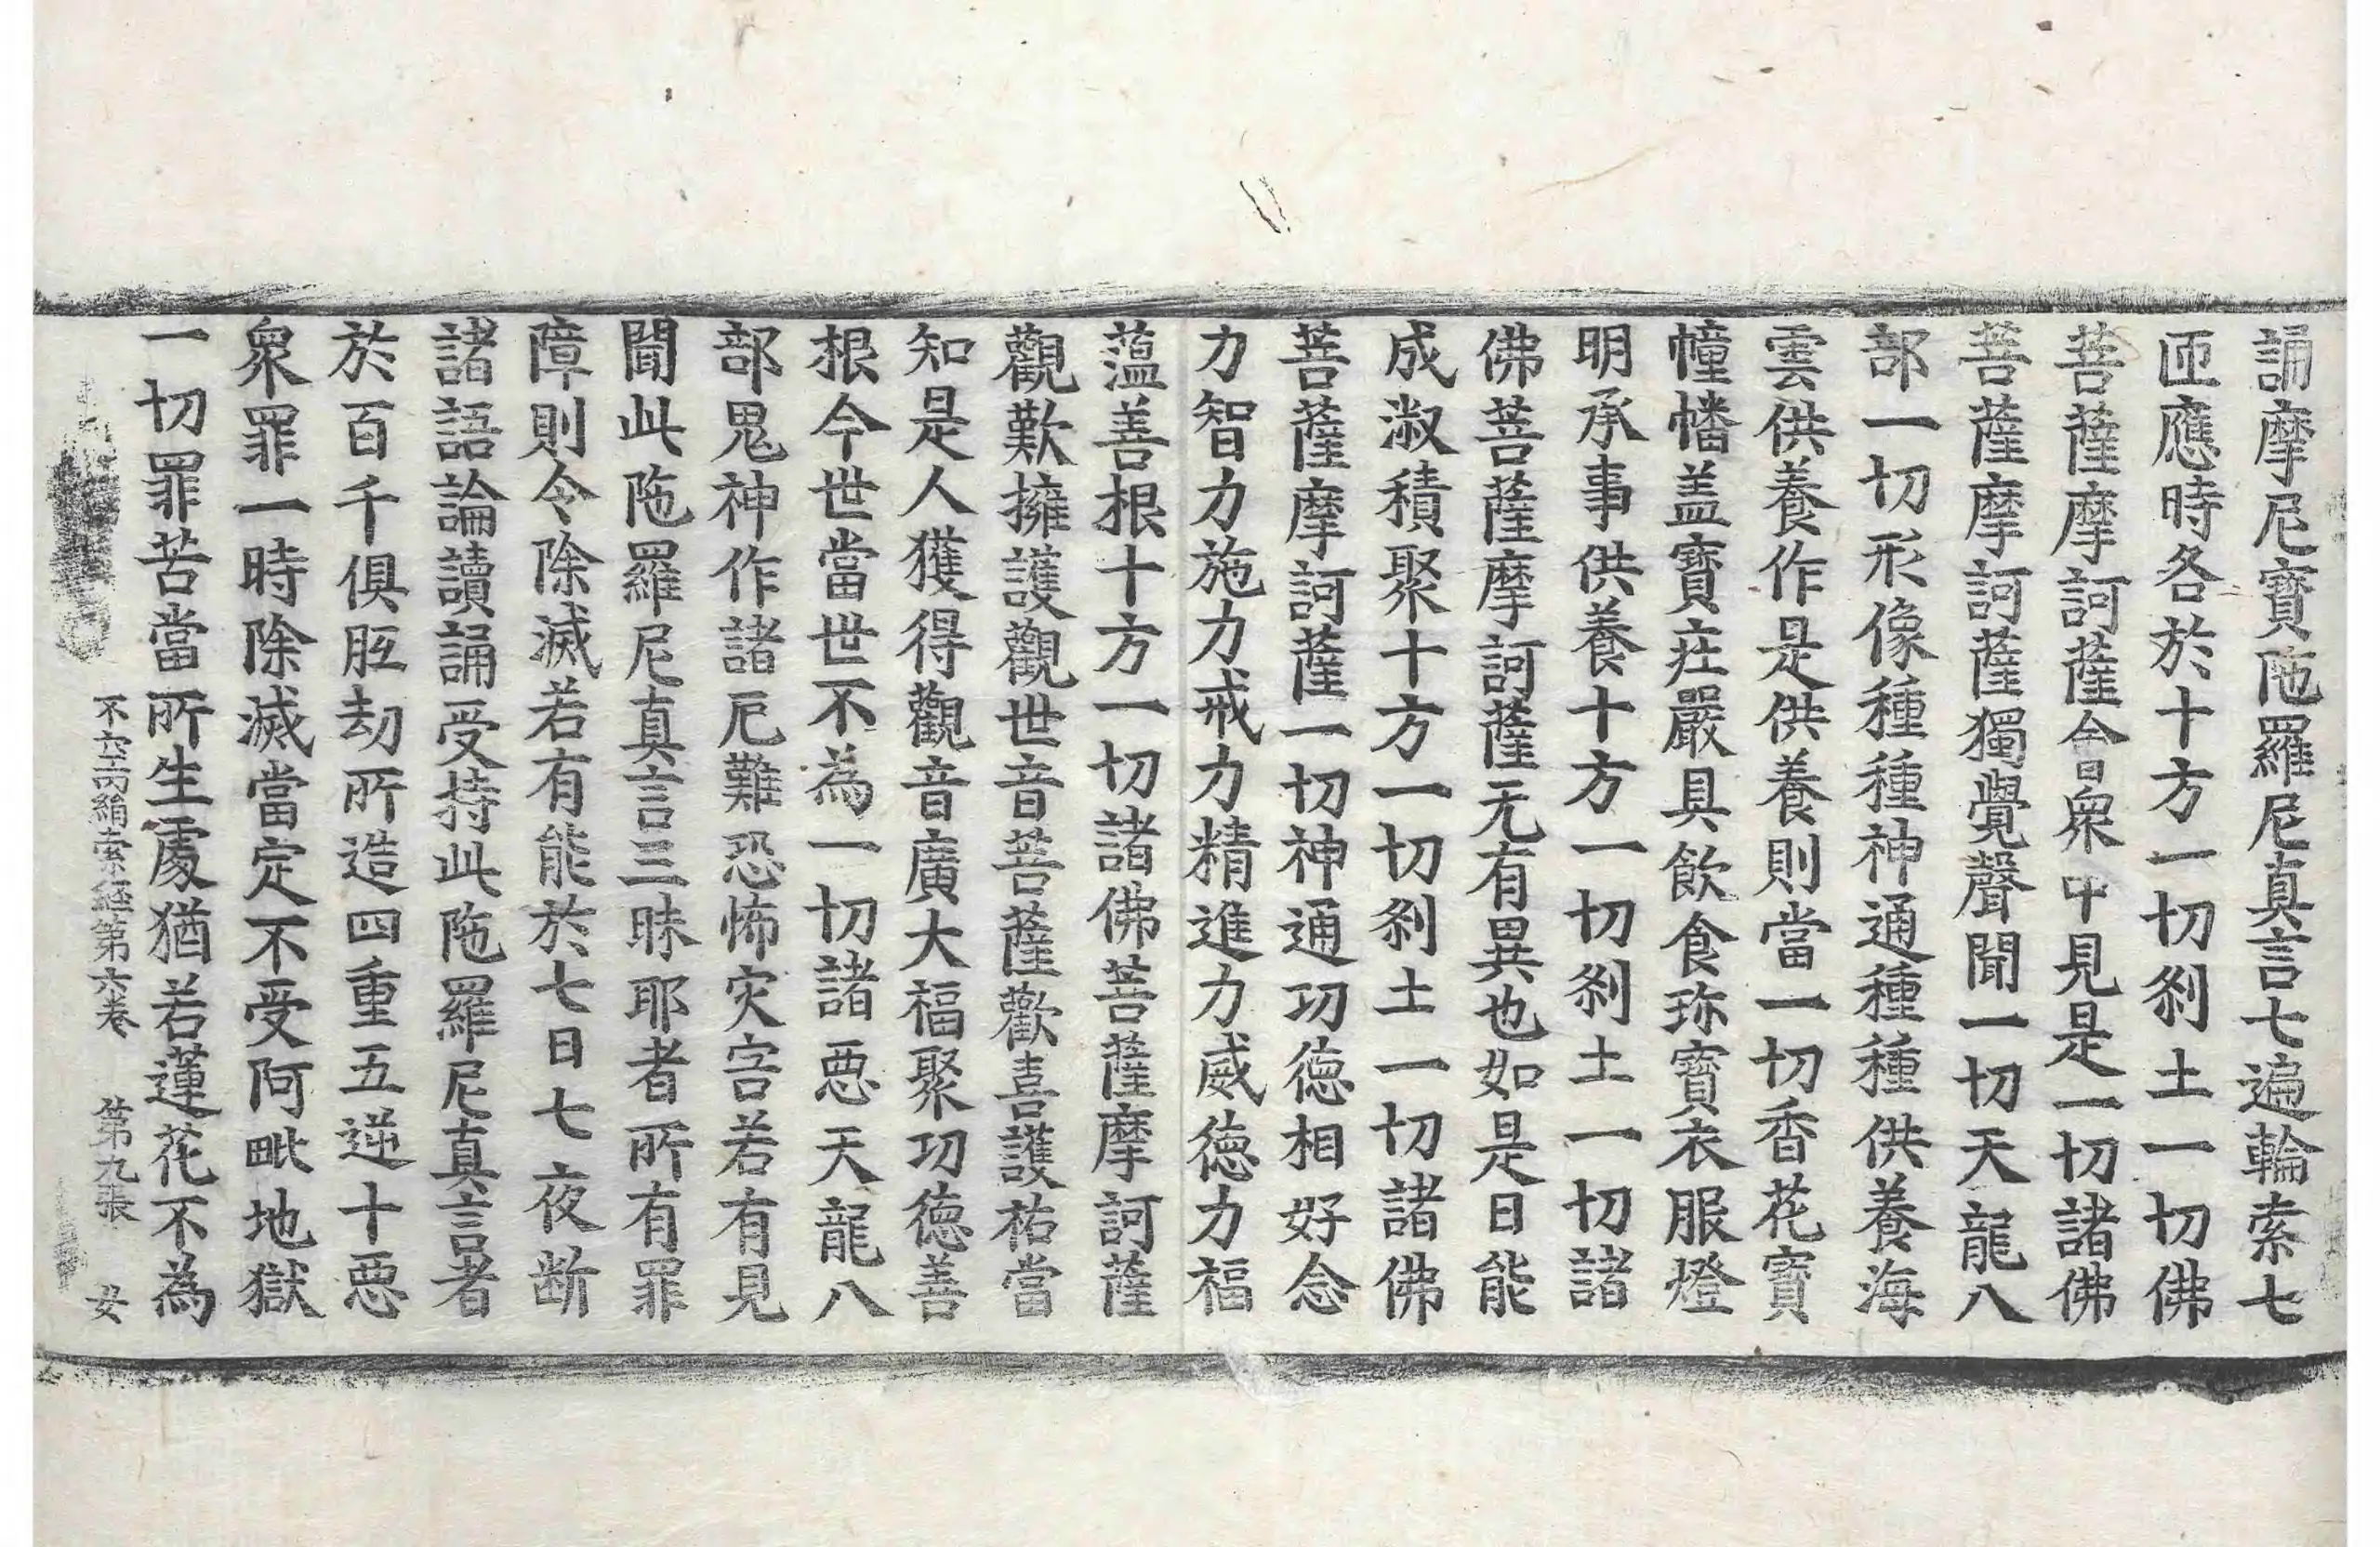 誦摩尼寶陁羅尼真言七遍輪索七
匝應時各於十方一切刹土一切佛
菩薩摩訶薩會衆中見是一切諸佛
菩薩摩訶薩獨覺聲聞一切天龍八
部一切形像種種神通種種供養海
雲供養作是供養則當一切香花寶
幢幡盖寶庄嚴具飲食珎寶衣服燈
明承事供養十方一切刹土一切諸
佛菩薩摩訶薩无有異也如是日能
成淑積聚十方一切刹土一切諸佛
菩薩摩訶薩一切神通功德相好念
力智力施力戒力精進力威德力福
薀善根十方一切諸佛菩薩摩訶薩
觀歎擁護觀世音菩薩歡喜護祐當
知是人獲得觀音廣大福聚功德善
根今世當世不為一切諸惡天龍八
部鬼神作諸厄難恐怖灾害若有見
聞此陁羅尼真言三昧耶者所有罪
障則令除滅若有能於七日七夜斷
諸語論讀誦受持此陁羅尼真言者
於百千俱胝劫所造四重五逆十惡
衆罪一時除滅當定不受阿毗地獄
一切罪苦當所生處猶若蓮花不為
不空羂索經第六卷　第九張　女